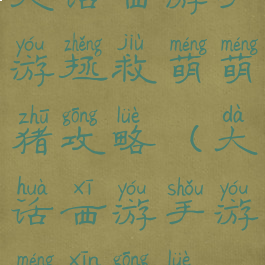 yóu zhěng jiù méng méng
游拯救萌萌
zhū gōng lüè dà
猪攻略（大
huà xī yóu shǒu yóu
话西游手游
méng xīn gōng lüè